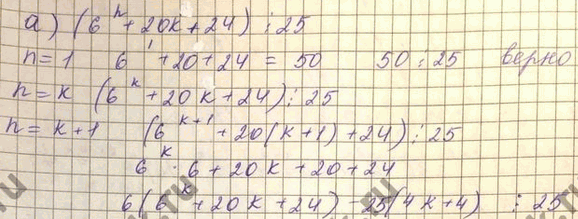 а) (6ⁿ + 20к + 24) ⋮ 25
n = 1 6¹ + 20 + 24 = 50 50 ⋮ 25 верно
n = к (6ᵏ + 20к + 24) ⋮ 25
n = к + 1 (6ᵏ⁺¹ + 20(к+1) + 24) ⋮ 25
6ᵏ · 6 + 20к + 20 + 24
6(6ᵏ + 20к + 24) - 25(4к + 4) ⋮ 25